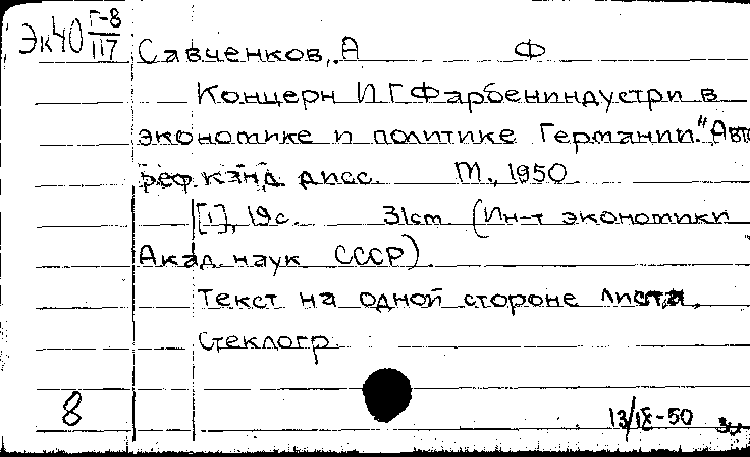 Эк40 Г-8/117
Савченков, А Ф
Концерн И.Г.Фарбениндустри в
экономике и политике Германии." Авто
реф. канд. дисс. М., 1950
[1], 19с. 31см. (Ин-т экономики
Акад. наук СССР).
Текст на одной стороне листа.
Стеклогр.
8
13/IX-50